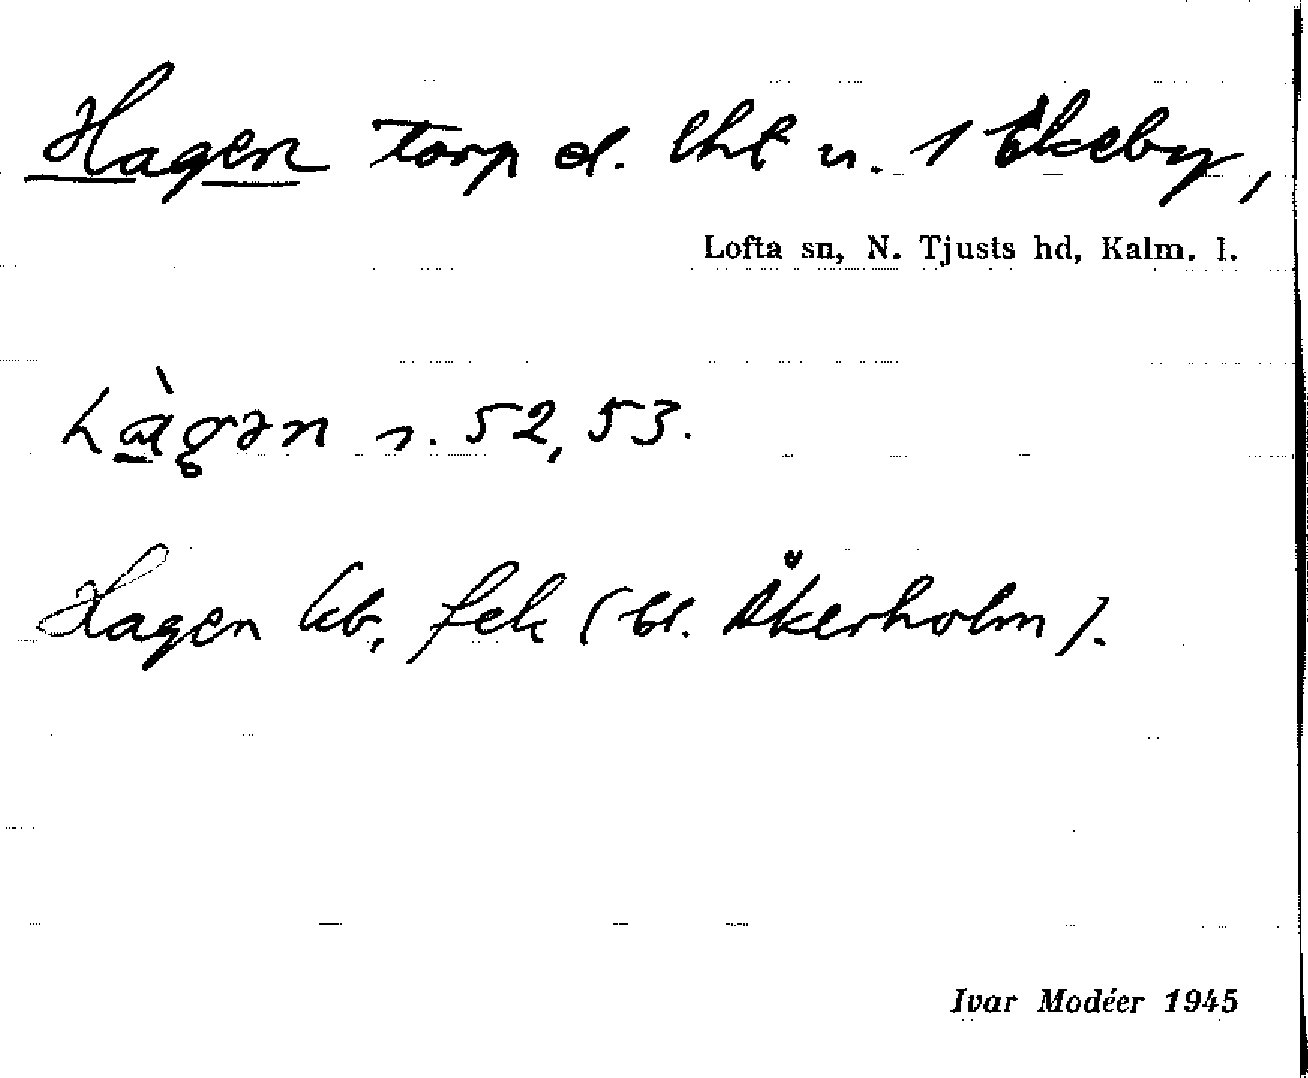 Hagen torp el. lht u. 1 Ekeby,
Lofta sn, N. Tjusts hd, Kalm. l.
hàgən s. 52, 53.
Hagen kb, fek (bl. Åkerholm).
Ivar Modéer 1945